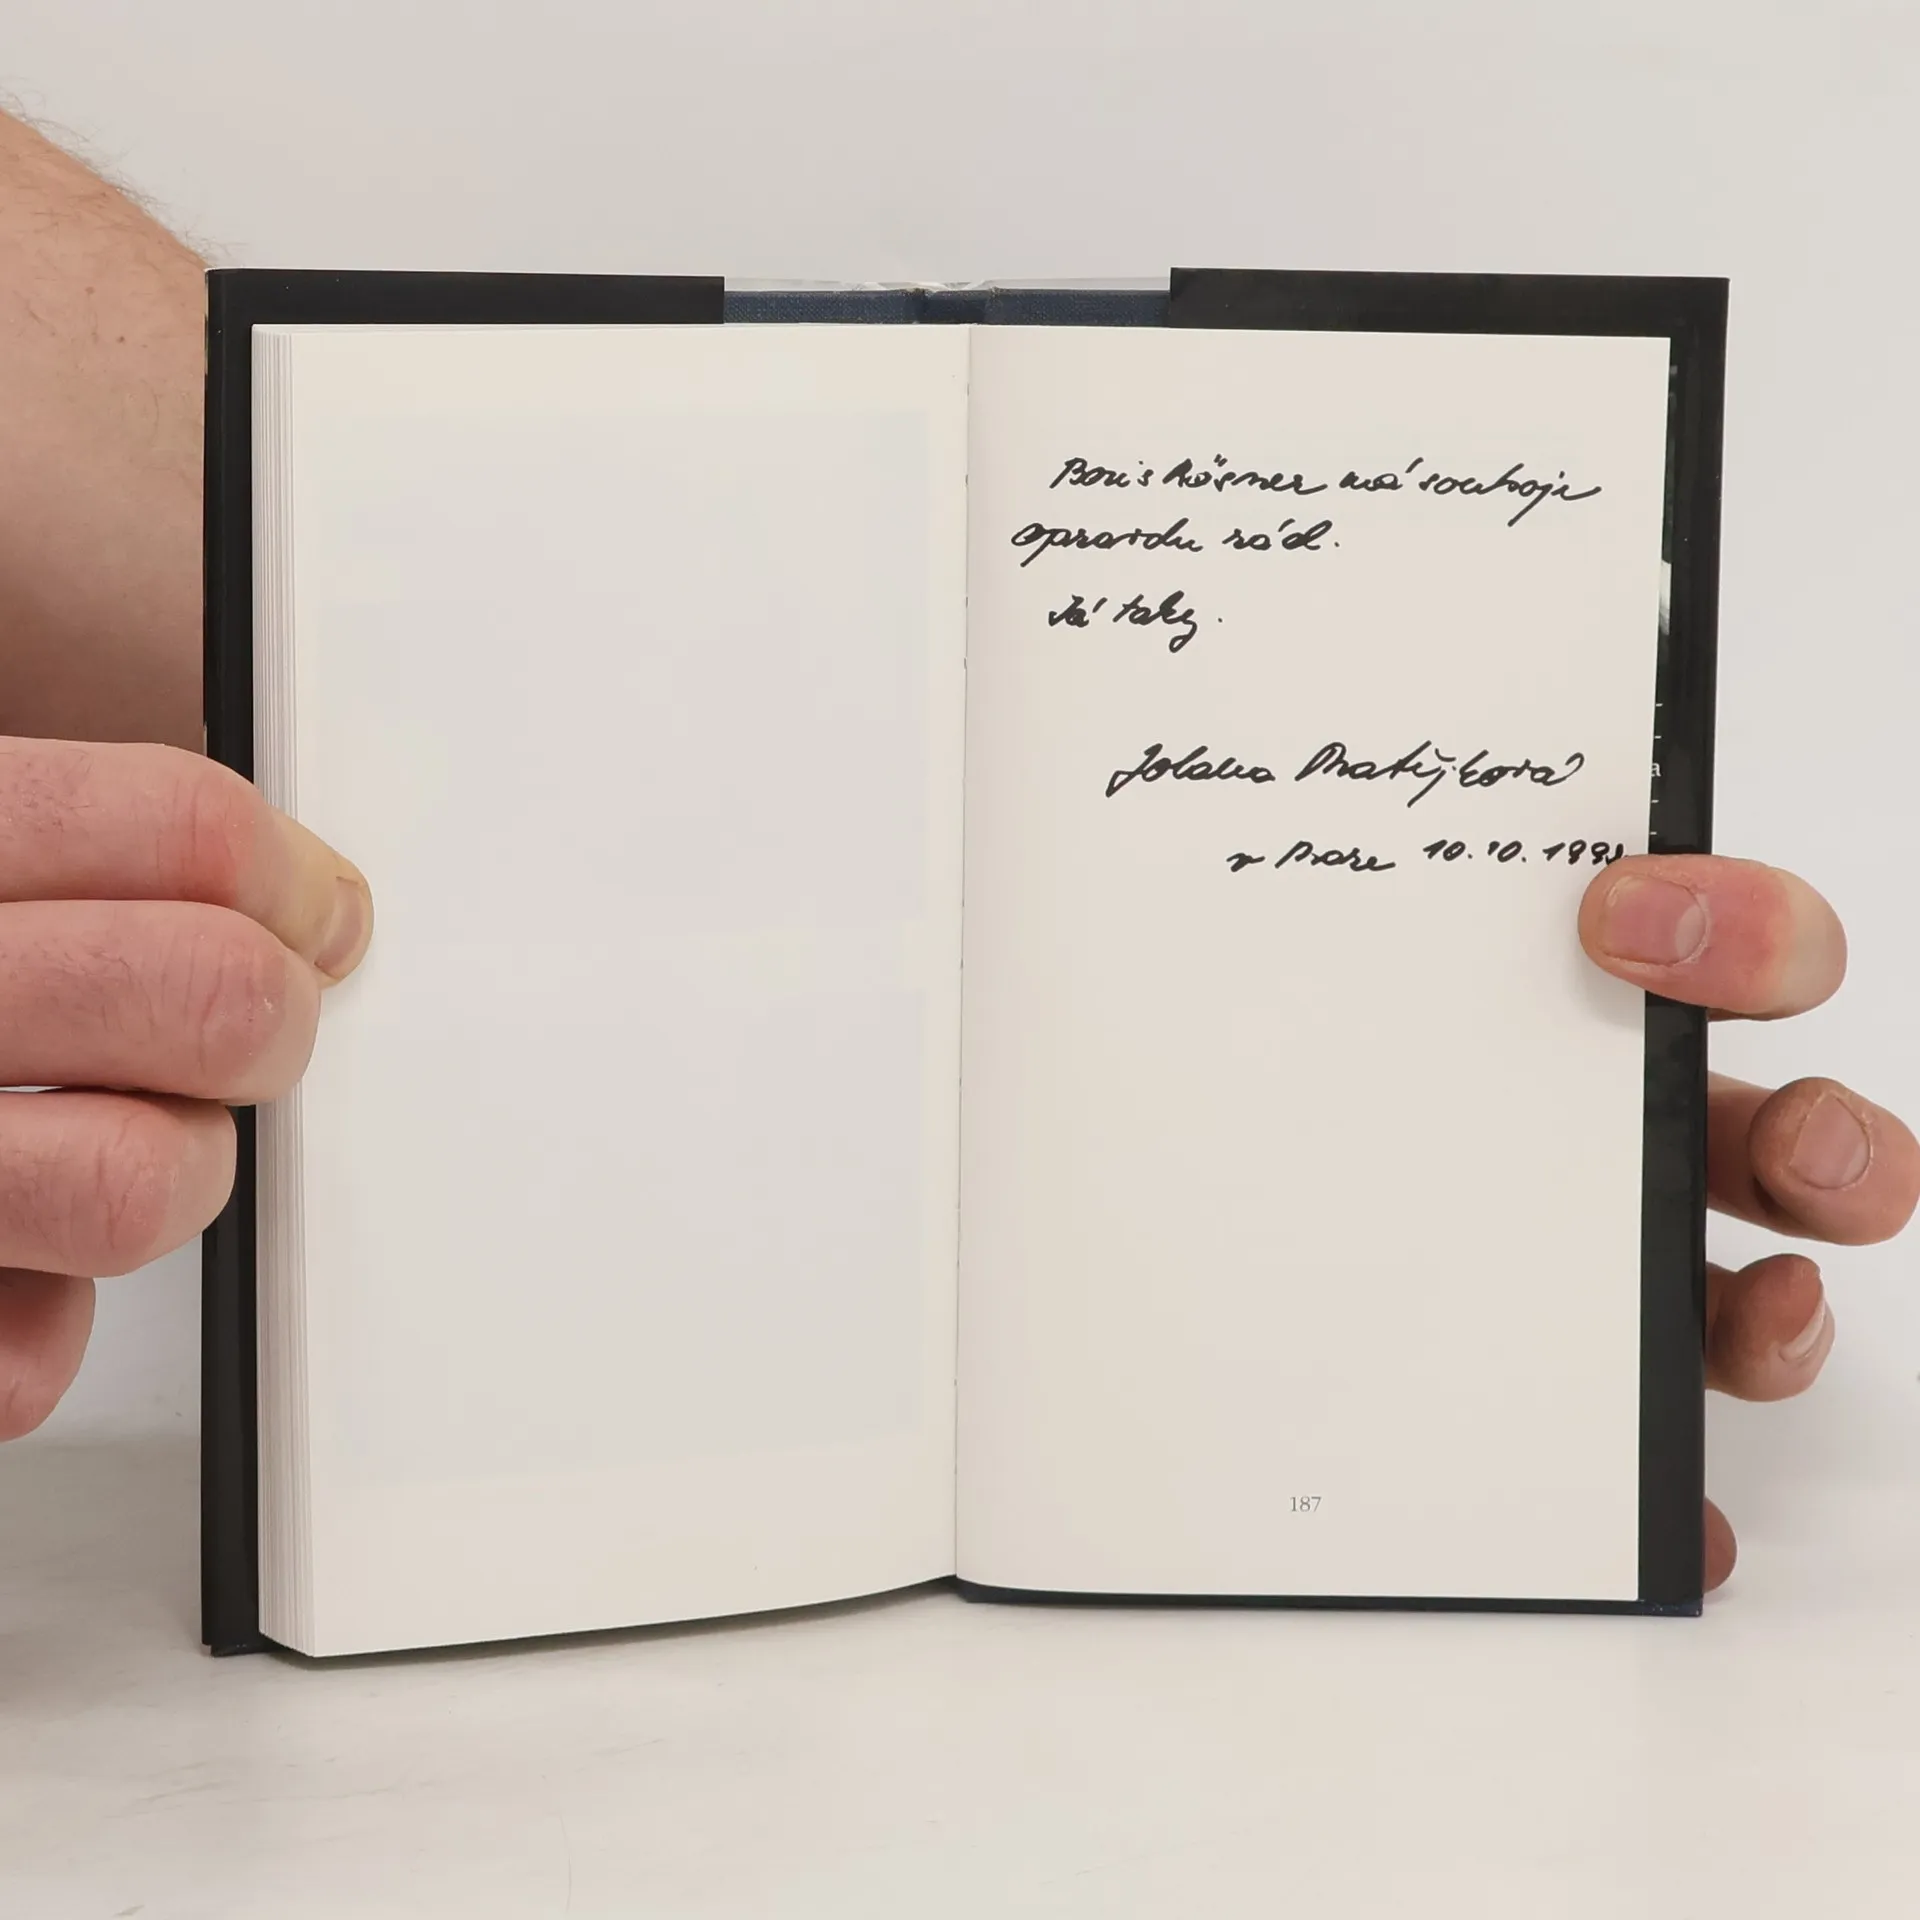 Boris Rösner má souboje
opravdu rád.
Já taky.
Jolana Matějková
v Praze 10.10.199
187
a